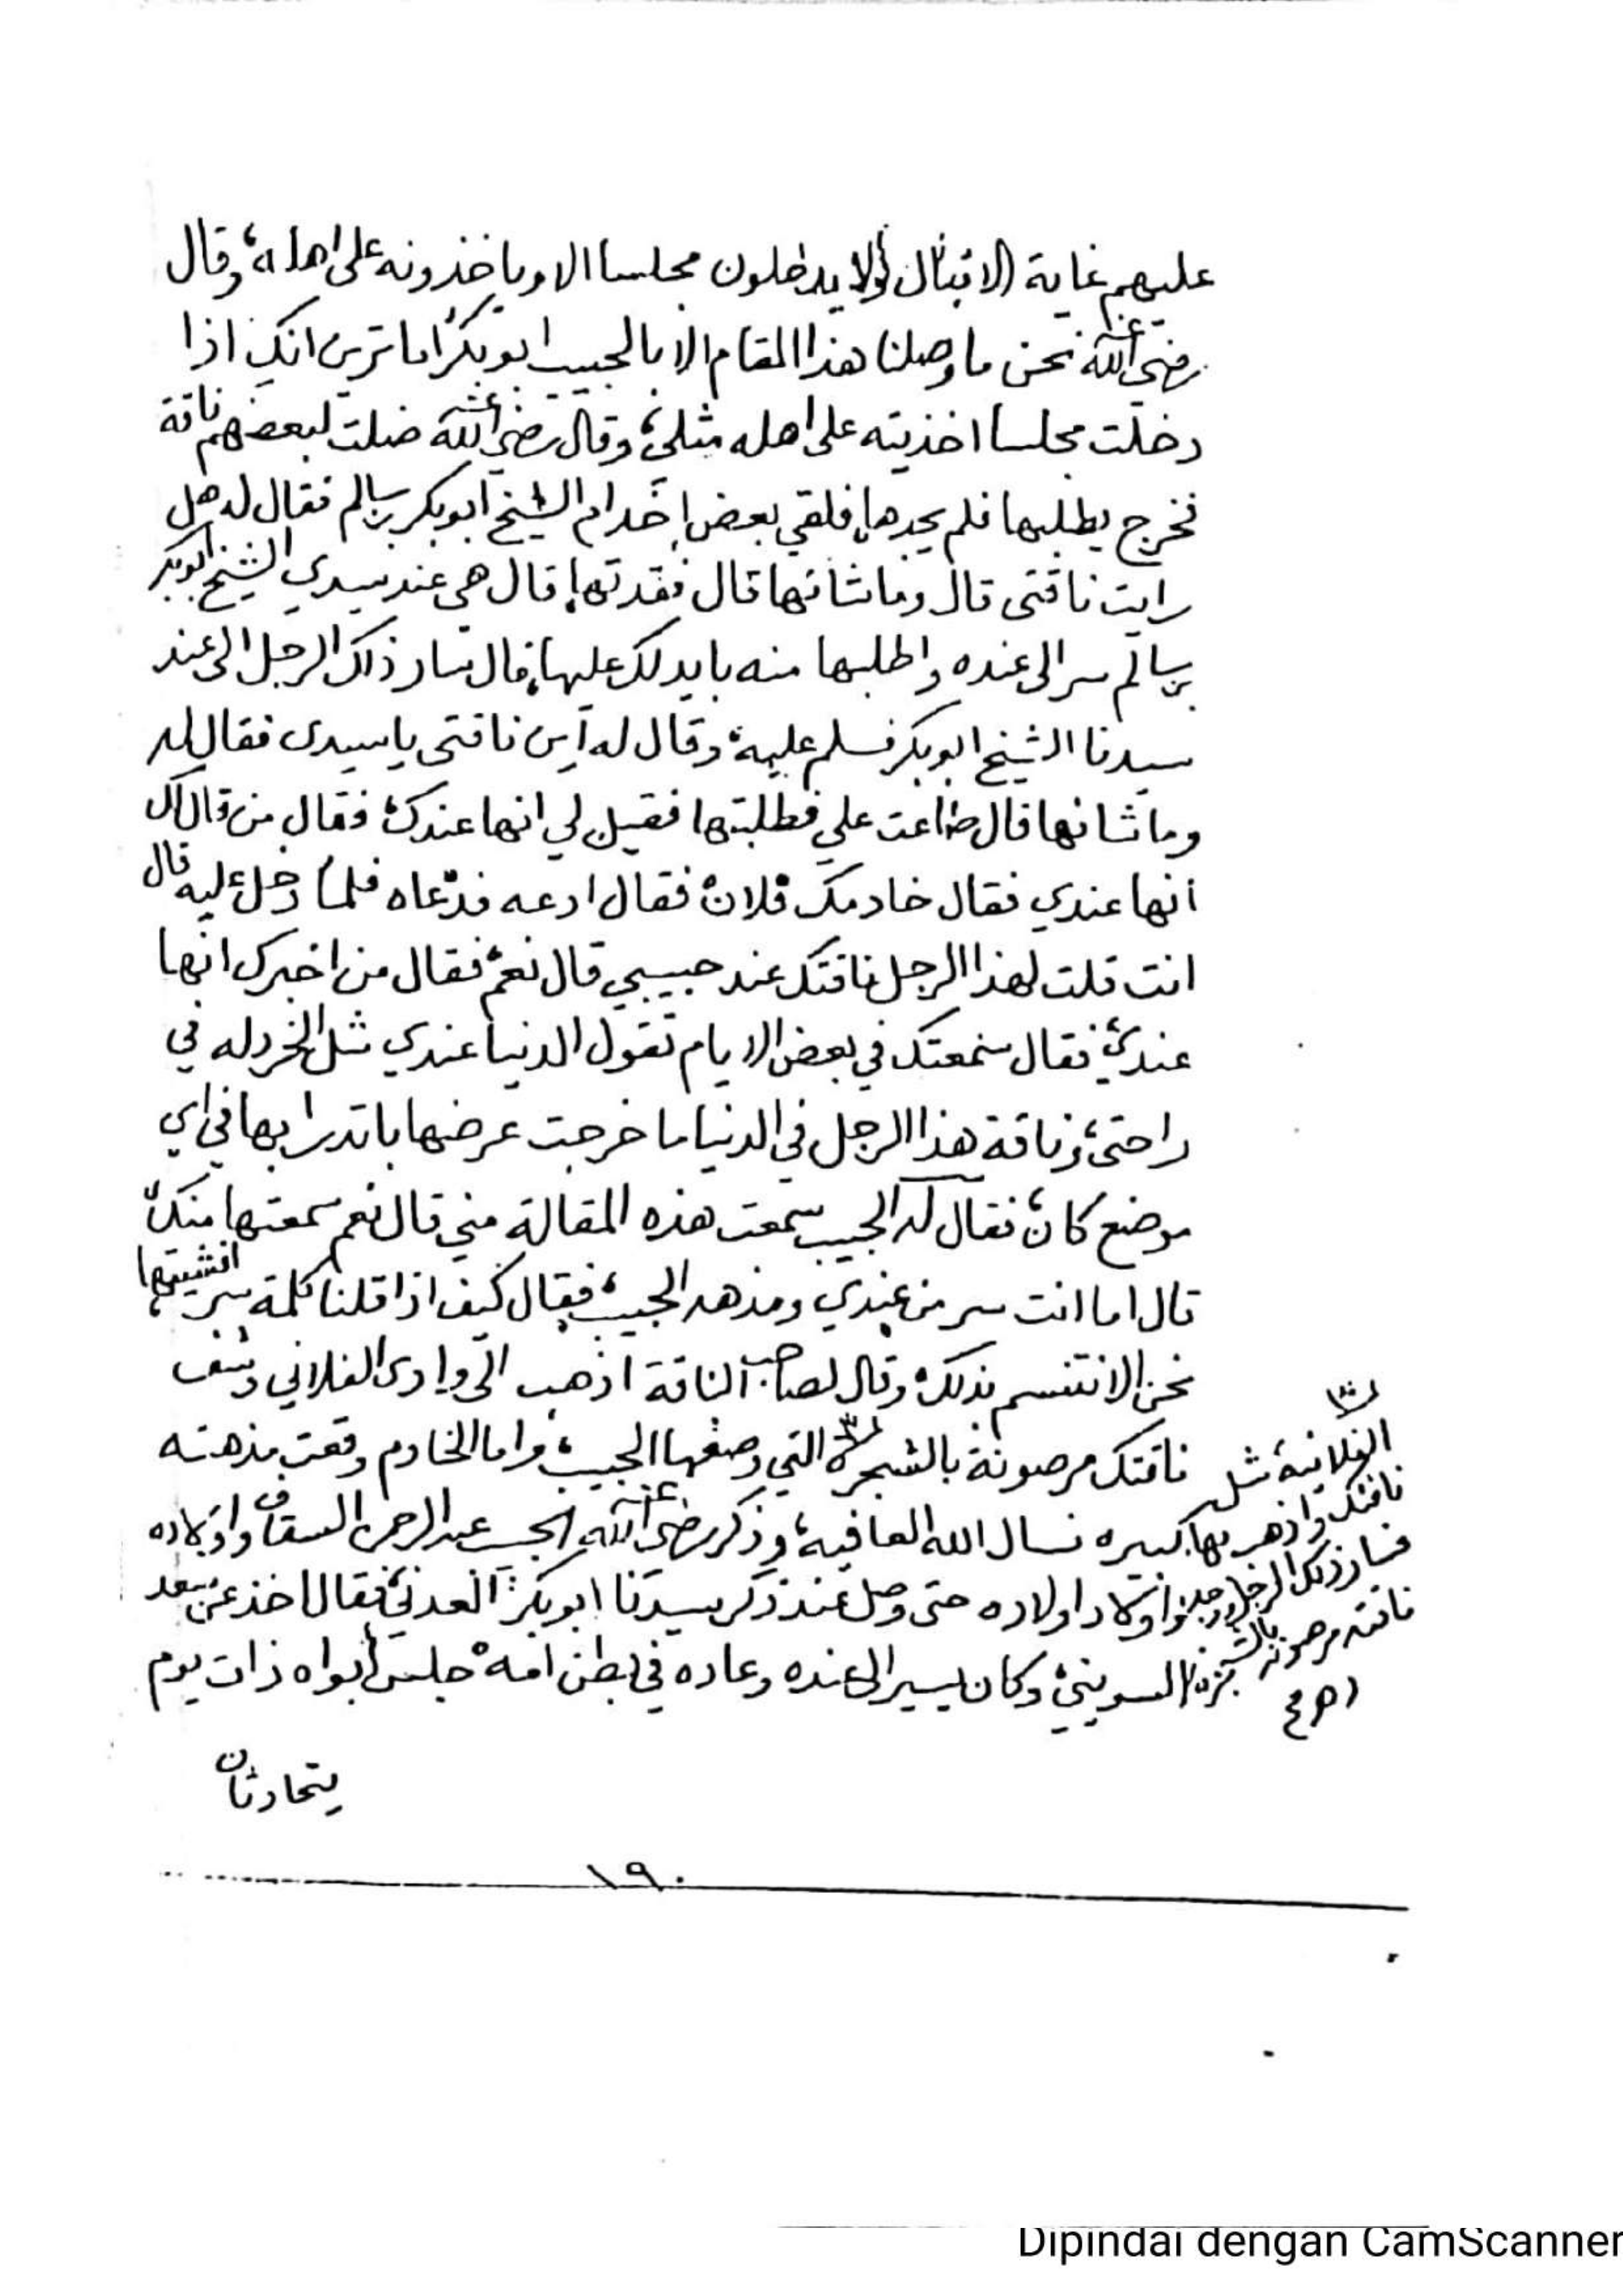 عليهم غاية الاقبال ولا يدخلون مجلسا الا وياخذونه على اهله، وقال
رضي الله عنه نحن ما وصلنا هذا المقام الا بالحبيب ابوبكر اما ترين انك اذا
دخلت مجلسا اخذيته على اهله مثلي، وقال رضي الله عنه ضلت لبعضهم ناقة
فخرج يطلبها فلم يجدها، فلقي بعض اخدام الشيخ ابوبكر بن سالم فقال له هل
رايت ناقتى قال وما شانها قال فقدتها، قال هي عند سيدي الشيخ ابوبكر
بن سالم سر الى عنده واطلبها منه بايدلك عليها، قال سار ذلك الرجل الى عند
سيدنا الشيخ ابوبكر فسلم عليه، وقال له اين ناقتى يا سيدى فقال له
وما شانها قال ضاعت علي فطلبتها فقيل لي انها عندك، فقال من قال لك
انها عندي فقال خادمك فلان، فقال ادعه فدعاه فلما دخل عليه قال
انت قلت لهذا الرجل ناقتك عند حبيبي قال نعم، فقال من اخبرك انها
عندي، فقال سمعتك في بعض الايام تقول الدنيا عندي مثل الخردله في
راحتى، وناقة هذا الرجل في الدنيا ما خرجت عرضها با تدرا بها في اي
موضع كان، فقال له الحبيب سمعت هذه المقالة مني قال نعم سمعتها منك،
قال اما انت سر من عندي ومذهه الحبيب، فقال كيف اذا قلنا كلمة سر افشيتها،
نحن الا نتنسم بذلك، وقال لصاحب الناقة اذهب الى وادى الفلاني وشف
ناقتك مرصونة بالشجره التي وصفها الحبيب، واما الخادم وقعت مذهته
كبيره نسال الله العافيه، وذكر رضي الله عنه الحبيب عبد الرحمن السقاف واولاده
واولاد اولاده حتى وصل عند ذكر سيدنا ابوبكر العدني، فقال اخذ عن سعد
السويني، وكان يسير الى عنده وعاده في بطن امه، جلس ابواه ذات يوم
يتحادثان
الفلانية، شل
ناقتك واذهب بها
فسار ذلك الرجل ووجد
ناقته مرصونه بالشجره
١٩٠
Dipindai dengan CamScanner